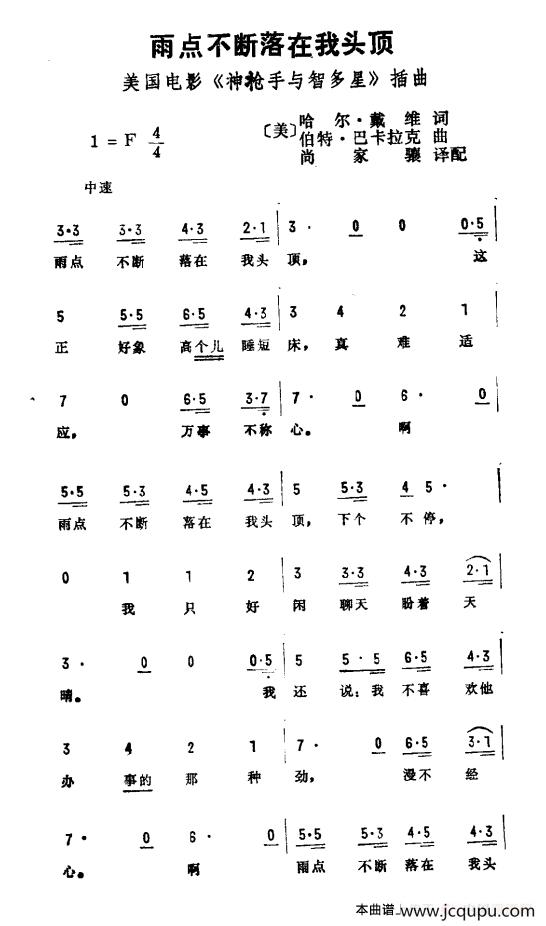 雨点不断落在我头顶
美国电影《神枪手与智多星》插曲
1 = F 4/4
〔美〕哈尔·戴维 词
伯特·巴卡拉克 曲
尚家骧 译配
中速
3·3 3·3 4·3 2·1 | 3· 0 0 0·5
雨点 不断 落在 我头 顶, 这
5 5·5 6·5 4·3 | 3 4 2 1
正 好象 高个儿 睡短 床, 真 难 适
7 0 6·5 3·7 | 7· 0 6· 0
应, 万事 不称 心。 啊
5·5 5·3 4·5 4·3 | 5 5·3 4 5· |
雨点 不断 落在 我头 顶, 下个 不停,
0 1 1 2 | 3 3·3 4·3 2·1 |
我 只 好 闲 聊天 盼着 天
3· 0 0 0·5 | 5 5·5 6·5 4·3 |
晴。 我 还 说:我 不喜 欢他
3 4 2 1 | 7· 0 6·5 3·1 |
办 事的 那 种 劲, 漫不 经
7· 0 6· 0 | 5·5 5·3 4·5 4·3 |
心。 啊 雨点 不断 落在 我头
本曲谱 www.jcqupu.com